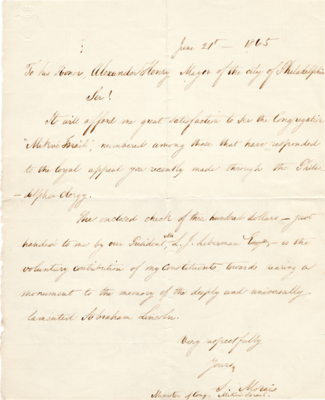 June 21st — 1865
To his Honor, Alexander Henry Mayor of the city of Philadelphia
Sir!
It will afford me great satisfaction to see the Congregation
"Mikve Israel", numbered among those that have responded
to the loyal appeal you recently made through the Phila-
-delphia clergy.
The enclosed check of two hundred dollars — just
handed to me by our President, Mr L. J. Leberman Esqr, — is the
voluntary contribution of my Constituents towards raising a
monument to the memory of the deeply and universally
lamented Abraham Lincoln.
Very respectfully
Yours,
S. Morais
Minister of Cong. Mikve Israel.